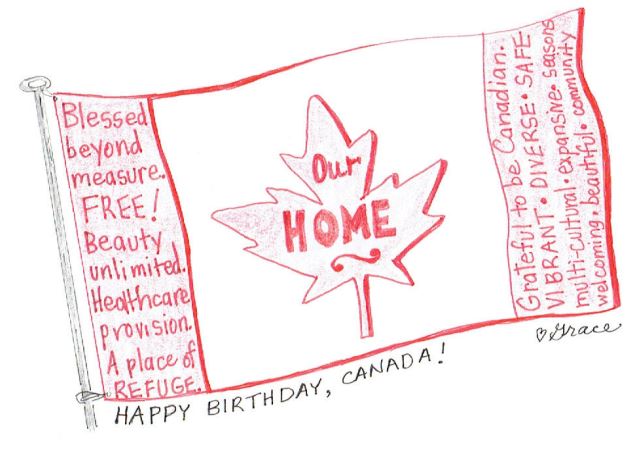 Blessed
beyond
measure.
FREE!
Beauty
unlimited.
Healthcare
provision.
A place of
REFUGE.
Our
HOME
Grateful to be Canadian.
VIBRANT • DIVERSE • SAFE
multi-cultural • expansive • seasons
welcoming • beautiful • community
♡ Grace
HAPPY BIRTHDAY, CANADA!